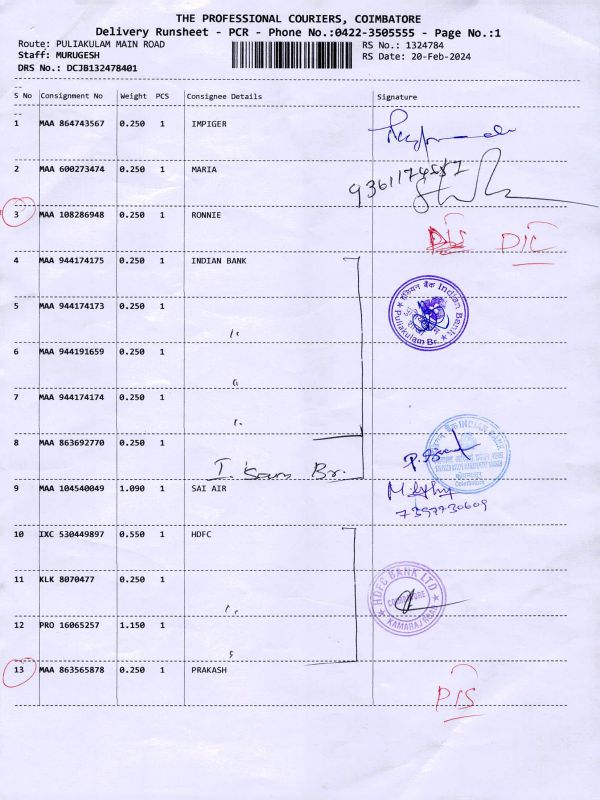 THE PROFESSIONAL COURIERS, COIMBATORE
Delivery Runsheet - PCR - Phone No.:0422-3505555 - Page No.:1
Route: PULIAKULAM MAIN ROAD RS No.: 1324784
Staff: MURUGESH RS Date: 20-Feb-2024
DRS No.: DCJB132478401
S No Consignment No Weight PCS Consignee Details Signature
1 MAA 864743567 0.250 1 IMPIGER
2 MAA 600273474 0.250 1 MARIA
9361174587
3 MAA 108286948 0.250 1 RONNIE
DIC
4 MAA 944174175 0.250 1 INDIAN BANK
5 MAA 944174173 0.250 1
इंडियन बैंक Indian Bank
Puliakulam Br.
6 MAA 944191659 0.250 1
7 MAA 944174174 0.250 1
8 MAA 863692770 0.250 1
Br.
INDIAN BANK
9 MAA 104540049 1.090 1 SAI AIR
7397730609
10 IXC 530449897 0.550 1 HDFC
11 KLK 8070477 0.250 1
HDFC BANK LTD
COIMBATORE
KAMARAJ ROAD
12 PRO 16065257 1.150 1
13 MAA 863565878 0.250 1 PRAKASH
PIS